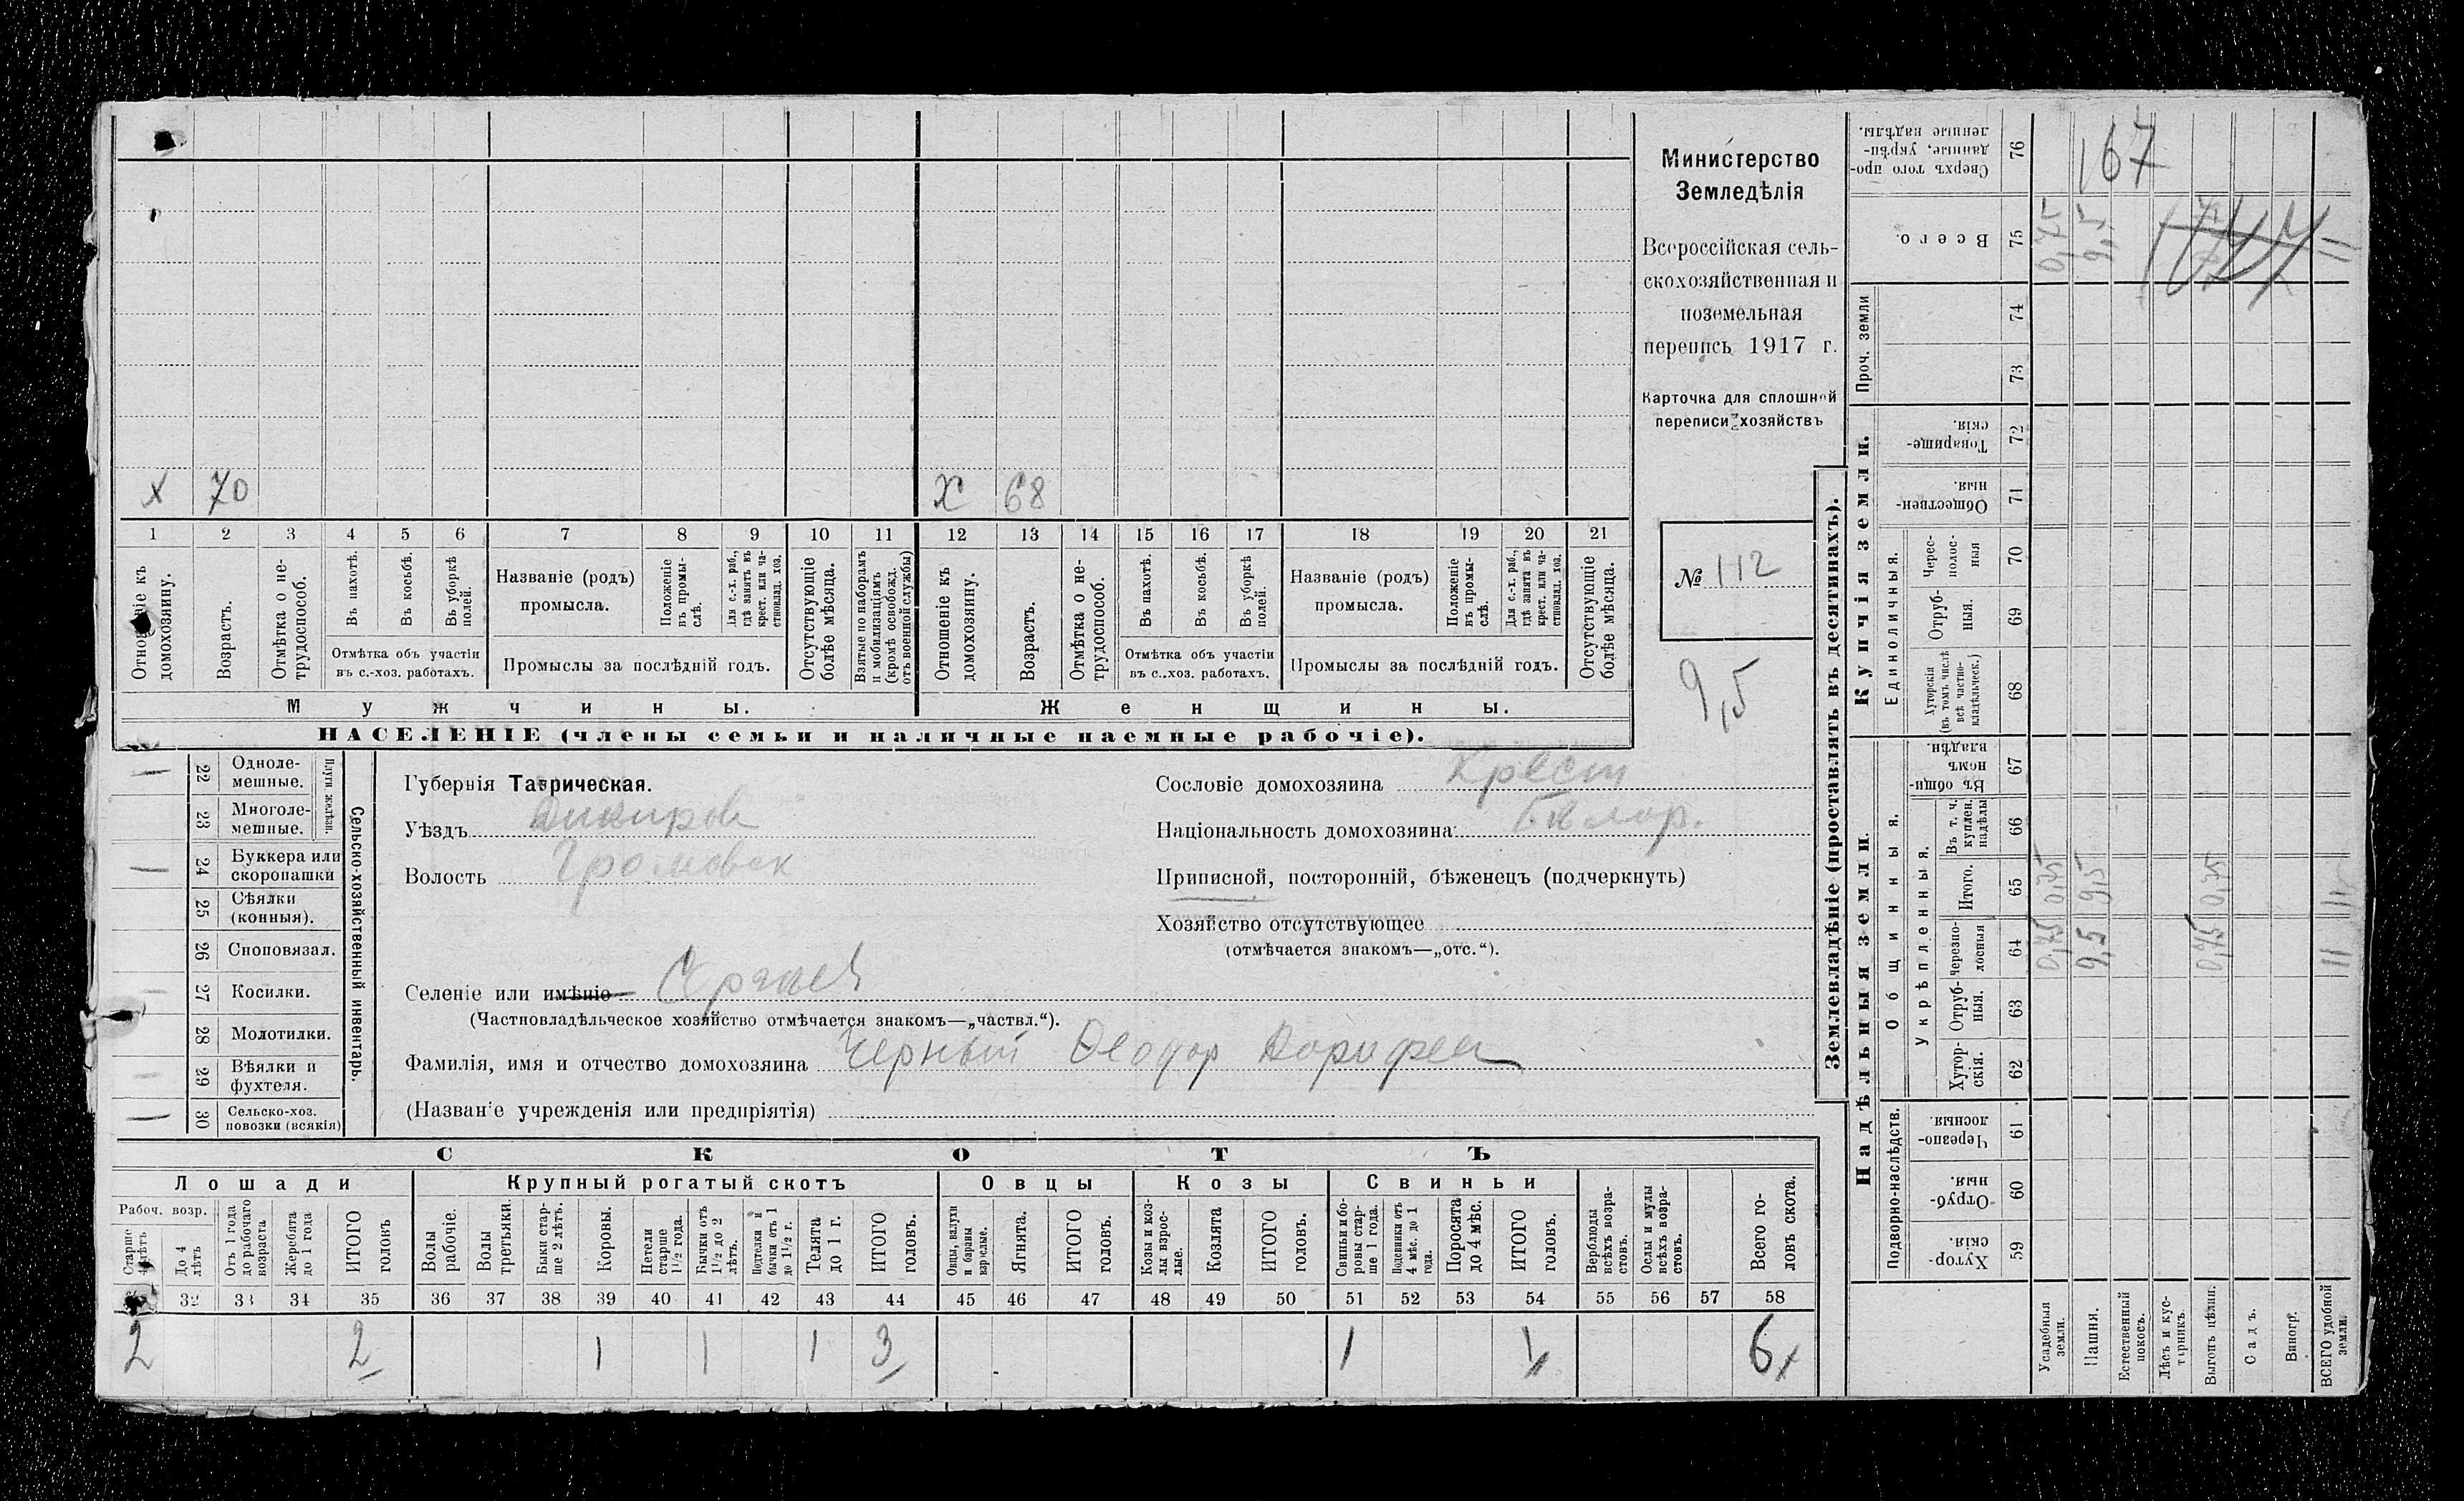 X 70 X 68
1 2 3 4 5 6 7 8 9 10 11 12 13 14 15 16 17 18 19 20 21
Отношеніе къ домохозяину.
Возрастъ.
Отмѣтка о не-
трудоспособ.
Въ пахотѣ.
Въ косьбѣ.
Въ уборкѣ
полей.
Отмѣтка объ участіи
въ с.-хоз. работахъ.
Названіе (родъ)
промысла.
Положеніе
въ промы-
слѣ.
Для с.-х. раб.,
гдѣ занятъ въ
крест. или ча-
стновлад. хоз.
Промыслы за послѣдній годъ.
Отсутствующіе
болѣе мѣсяца.
Взятые по наборамъ
и мобилизаціямъ
(кромѣ освобожд.
отъ военной службы)
Отношеніе къ
домохозяину.
Возрастъ.
Отмѣтка о не-
трудоспособ.
Въ пахотѣ.
Въ косьбѣ.
Въ уборкѣ
полей.
Отмѣтка объ участіи
въ с..хоз. работахъ.
Названіе (родъ)
промысла.
Положеніе
въ промы-
слѣ.
Для с.-х. раб.,
гдѣ занята въ
крест. или ча-
стновлад. хоз.
Промыслы за послѣдній годъ.
Отсутствующіе
болѣе мѣсяца.
Мужчины.
Женщины.
НАСЕЛЕНІЕ (члены семьи и наличные наемные рабочіе).
Министерство
Земледѣлія
Всероссійская сель-
скохозяйственная и
поземельная
перепись 1917 г.
Карточка для сплошной
переписи хозяйствъ
№ 112
9,5
22 Одноле-
мешные.
23 Многоле-
мешные.
Плуги желѣзн.
24 Буккера или
скоропашки
25 Сѣялки
(конныя).
26 Сноповязал.
27 Косилки.
28 Молотилки.
29 Вѣялки и
фухтеля.
30 Сельско-хоз.
повозки (всякія)
Сельско-хозяйственный инвентарь.
Губернія Таврическая.
Уѣздъ
Волость Громовск
Сословіе домохозяина Крест
Національность домохозяина
Приписной, посторонній, бѣженецъ (подчеркнуть)
Хозяйство отсутствующее
(отмѣчается знакомъ—„отс.“).
Селеніе или имѣніе
(Частновладѣльческое хозяйство отмѣчается знакомъ—„частвл.“).
Фамилія, имя и отчество домохозяина Черный Ѳеодор
(Названіе учрежденія или предпріятія)
СКОТЪ
Лошади
Крупный рогатый скотъ
Овцы
Козы
Свиньи
Рабоч. возр.
Старше
4 лѣтъ
До 4
лѣтъ
Отъ 1 года
до рабочаго
возраста
Жеребята
до 1 года
ИТОГО
головъ
Волы
рабочіе.
Волы
третьяки.
Быки стар-
ше 2 лѣтъ.
Коровы.
Нетели
старше
1½ года.
Бычки отъ
1½ до 2
лѣтъ.
Подтелки и
бычки отъ 1
до 1½ г.
Телята
до 1 г.
ИТОГО
головъ.
Овцы, валухи
и бараны
взрослые.
Ягнята.
ИТОГО
головъ.
Козы и коз-
лы взрос-
лые.
Козлята
ИТОГО
головъ.
Свиньи и бо-
ровы стар-
ше 1 года.
Подсвинки отъ
4 мѣс. до 1
года.
Поросята
до 4 мѣс.
ИТОГО
головъ.
Верблюды
всѣхъ возра-
стовъ.
Ослы и мулы
всѣхъ возра-
стовъ.
Всего го-
ловъ скота.
32 33 34 35 36 37 38 39 40 41 42 43 44 45 46 47 48 49 50 51 52 53 54 55 56 57 58
2 2 1 1 1 3 1 1 6
Землевладѣніе (проставлять въ десятинахъ).
Купчія земли.
Надѣльныя земли.
76 Сверхъ того про-
данные, укрѣп-
ленные надѣлы.
167
75 Всего.
0,75 9,5 11
Проч. земли
74
73
72 Товарище-
скія.
71 Обществен-
ныя.
Единоличныя.
70 Черес-
полос-
ныя
69 Отруб-
ныя.
68 Хуторскія
(въ томъ числѣ
всѣ частно-
владѣльческ.)
Общинныя.
67 Въ общи-
номъ
владѣн.
Укрѣпленныя.
66 Въ т. ч.
куплен.
надѣлы
65 Итого.
0,75 9,5 0,75 11
64 Черезпо-
лосныя
0,75 9,5 0,75 11
63 Отруб-
ныя.
62 Хутор-
скія.
Подворно-наслѣдств.
61 Черезпо-
лосныя
60 Отруб-
ныя.
59 Хутор-
скія.
Усадебныя
земли.
Пашня.
Естественный
покосъ.
Лѣсъ и кус-
тарникъ.
Выгонъ цѣлин.
Садъ.
Виногр.
ВСЕГО удобной
земли.